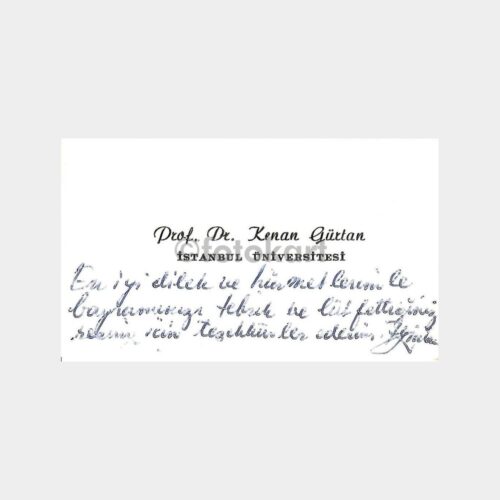 Prof. Dr. Kenan Gürtan
©fotokart
İSTANBUL ÜNİVERSİTESİ
En iyi dilek ve hürmetlerimle
bayramınızı tebrik ve lütfettiğiniz
resim için teşekkürler ederim.